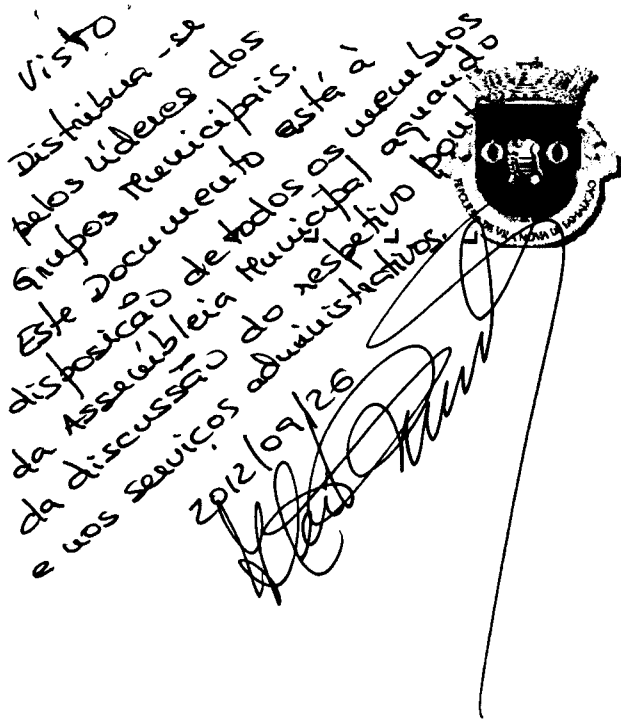 Visto
Distribua-se
pelos líderes dos
Grupos Municipais.
Este Documento está à
disposição de todos os membros
da Assembleia Municipal aquando
da discussão do respetivo
e nos serviços administrativos.
2012/09/26
FREGUESIA DE VILA NOVA DE FAMALICÃO